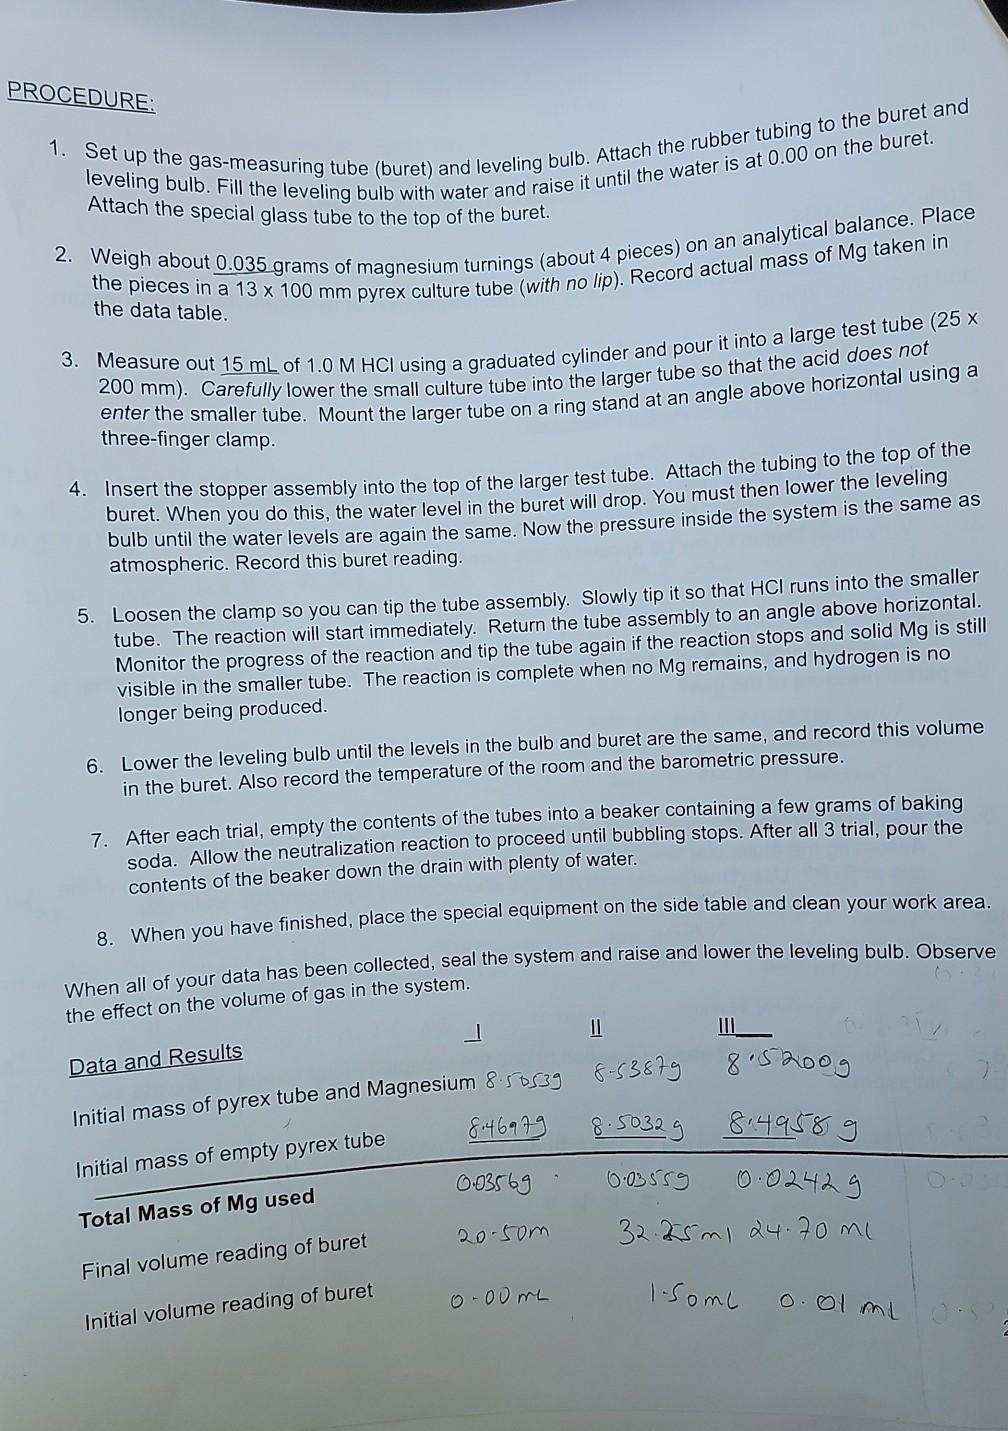 PROCEDURE:
1. Set up the gas-measuring tube (buret) and leveling bulb. Attach the rubber tubing to the buret and
leveling bulb. Fill the leveling bulb with water and raise it until the water is at 0.00 on the buret.
Attach the special glass tube to the top of the buret.
2. Weigh about 0.035 grams of magnesium turnings (about 4 pieces) on an analytical balance. Place
the pieces in a 13 x 100 mm pyrex culture tube (with no lip). Record actual mass of Mg taken in
the data table.
3. Measure out 15 mL of 1.0 M HCl using a graduated cylinder and pour it into a large test tube (25 x
200 mm). Carefully lower the small culture tube into the larger tube so that the acid does not
enter the smaller tube. Mount the larger tube on a ring stand at an angle above horizontal using a
three-finger clamp.
4. Insert the stopper assembly into the top of the larger test tube. Attach the tubing to the top of the
buret. When you do this, the water level in the buret will drop. You must then lower the leveling
bulb until the water levels are again the same. Now the pressure inside the system is the same as
atmospheric. Record this buret reading.
5. Loosen the clamp so you can tip the tube assembly. Slowly tip it so that HCl runs into the smaller
tube. The reaction will start immediately. Return the tube assembly to an angle above horizontal.
Monitor the progress of the reaction and tip the tube again if the reaction stops and solid Mg is still
visible in the smaller tube. The reaction is complete when no Mg remains, and hydrogen is no
longer being produced.
6. Lower the leveling bulb until the levels in the bulb and buret are the same, and record this volume
in the buret. Also record the temperature of the room and the barometric pressure.
7. After each trial, empty the contents of the tubes into a beaker containing a few grams of baking
soda. Allow the neutralization reaction to proceed until bubbling stops. After all 3 trial, pour the
contents of the beaker down the drain with plenty of water.
8. When you have finished, place the special equipment on the side table and clean your work area.
When all of your data has been collected, seal the system and raise and lower the leveling bulb. Observe
the effect on the volume of gas in the system.
Data and Results I II III
Initial mass of pyrex tube and Magnesium 8.5053g 8.5387g 8.5200g
Initial mass of empty pyrex tube 8.4697g 8.5032g 8.4958g
Total Mass of Mg used 0.0356g 0.0355g 0.0242g
Final volume reading of buret 20.50m 32.25ml 24.70 ml
Initial volume reading of buret 0.00mL 1.50mL 0.01 mL